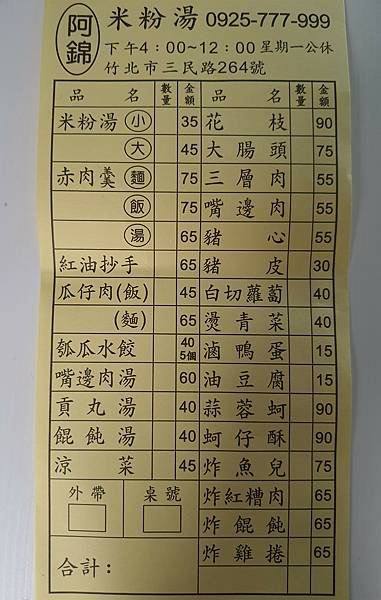 阿錦 米粉湯 0925-777-999
下午4：00~12：00 星期一公休
竹北市三民路264號
品名 數量 金額 品名 數量 金額
米粉湯 小 35 花枝 90
大 45 大腸頭 75
赤肉羹 麵 75 三層肉 55
飯 75 嘴邊肉 55
湯 65 豬心 55
紅油抄手 65 豬皮 30
瓜仔肉(飯) 45 白切蘿蔔 40
(麵) 65 燙青菜 40
瓠瓜水餃 40 5個 滷鴨蛋 15
嘴邊肉湯 60 油豆腐 15
貢丸湯 40 蒜蓉蚵 90
餛飩湯 40 蚵仔酥 90
涼菜 45 炸魚兒 75
外帶 桌號 炸紅糟肉 65
炸餛飩 65
合計： 炸雞捲 65